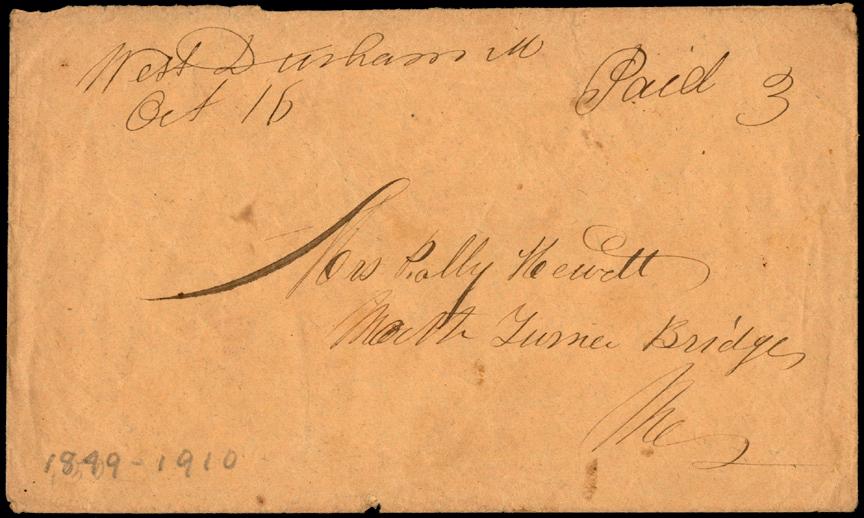 West Durham M
Oct 16
Paid 3
Mrs Polly Hewett
North Turner Bridge
Me
1849-1910